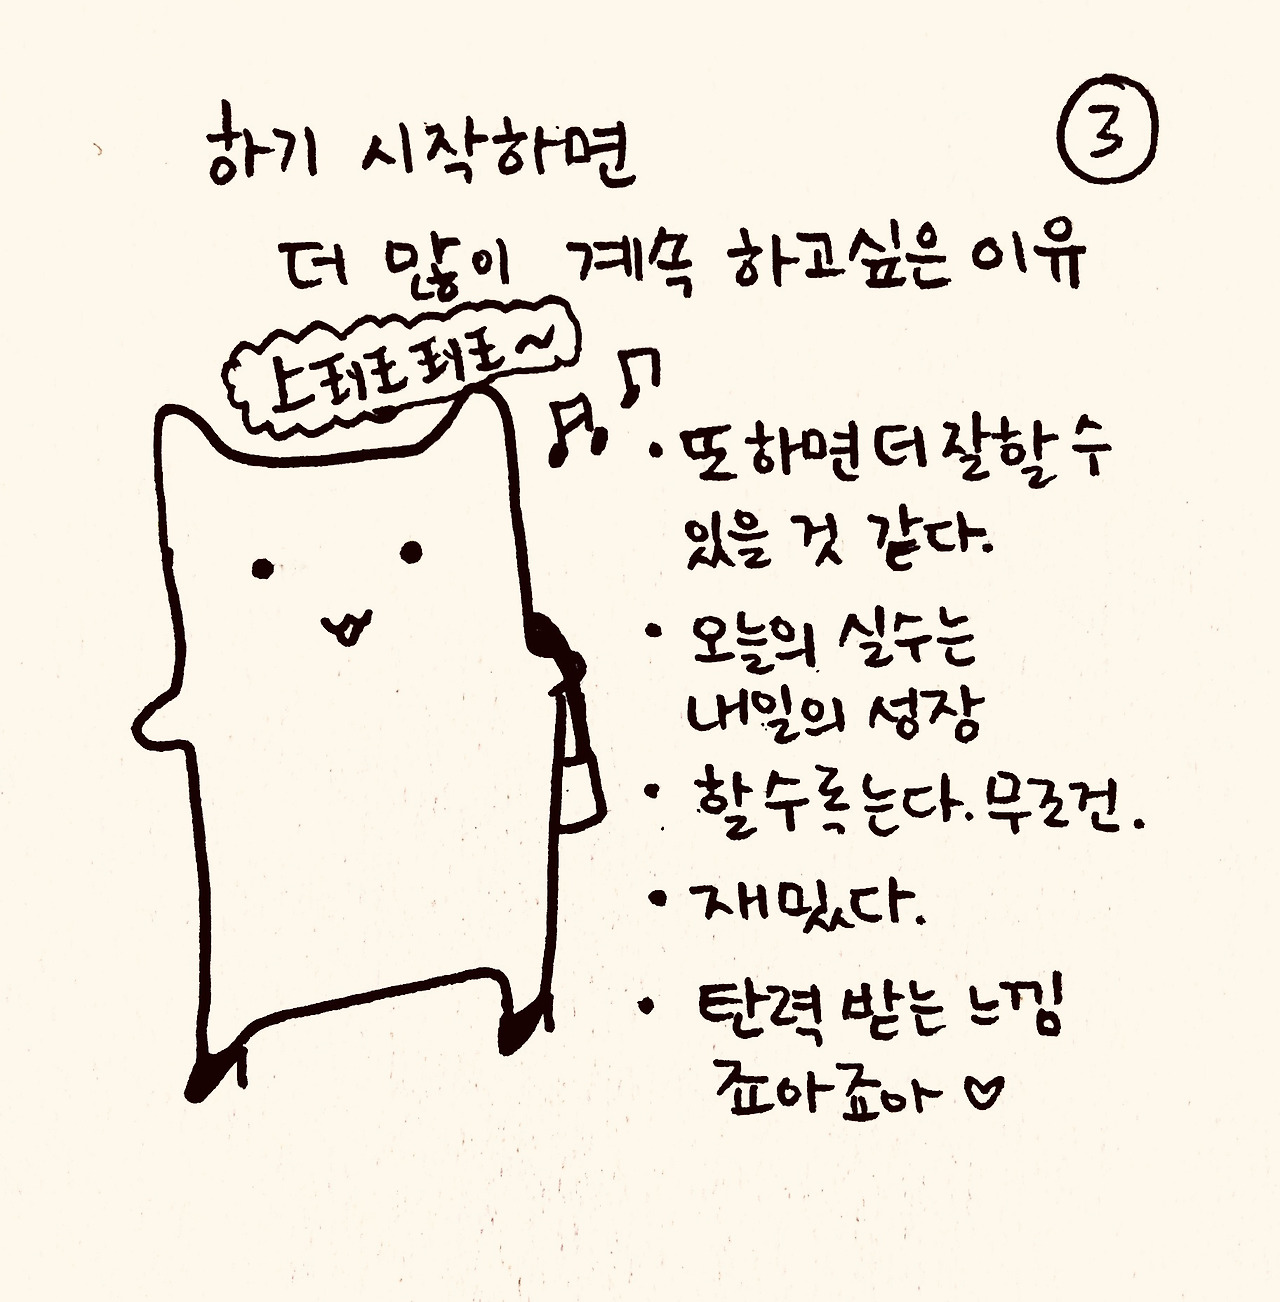 ③
하기 시작하면
더 많이 계속 하고싶은 이유
• 또 하면 더 잘할 수
있을 것 같다.
• 오늘의 실수는
내일의 성장
• 할수록 는다. 무조건.
• 재밌다.
• 탄력 받는 느낌
죠아죠아 ♡